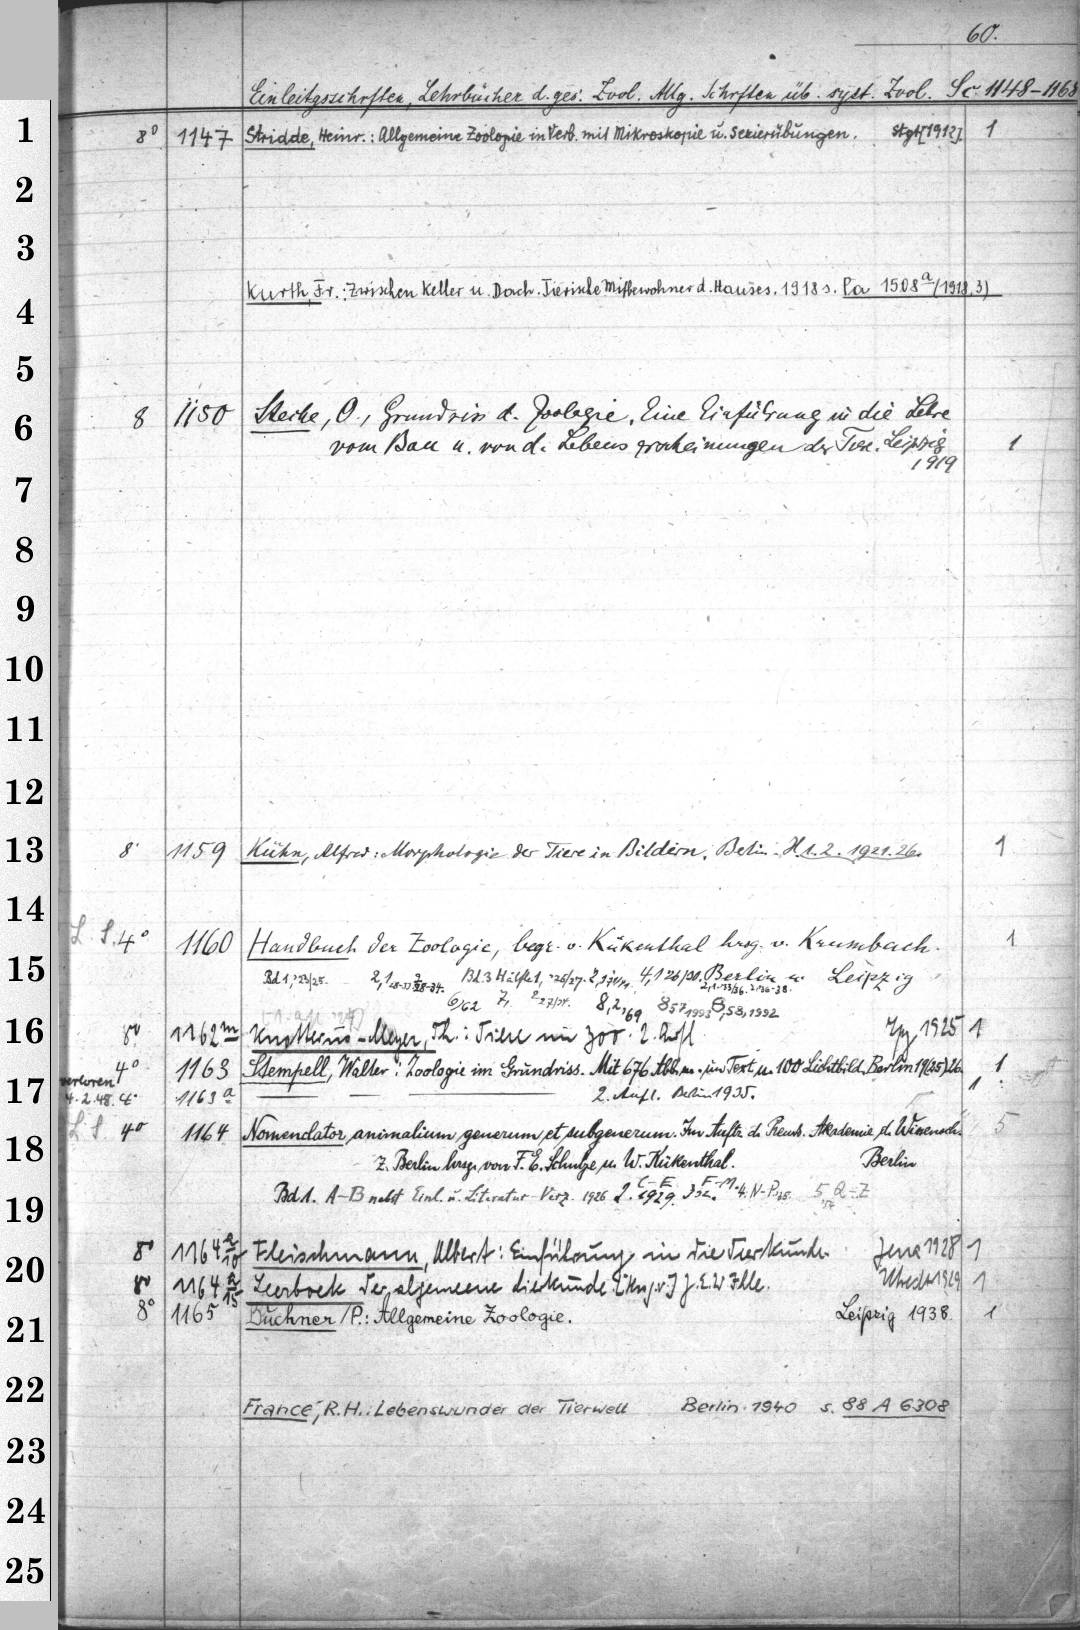 60.
Einleitgsschrften, Lehrbücher d. ges. Zool. Allg. Schrften üb. syst. Zool. Sc 1148-1168
1 8° 1147 Stridde, Heinr.: Allgemeine Zoologie in Verb. mit Mikroskopie u. Sezierübungen. Stgt [1912]. 1
2
3
Kurth, Fr.: Zwischen Keller u. Dach. Tierische Mitbewohner d. Hauses. 1918 s. La 1508 a/(1918,3)
4
5
6 8 1150 Steche, O., Grundriss d. Zoologie. Eine Einführung in die Lehre
vom Bau u. von d. Lebenserscheinungen der Tiere. Leipzig 1
1919
7
8
9
10
11
12
13 8° 1159 Kühn, Alfred: Morphologie der Tiere in Bildern. Berlin H 1.2. 1921.26. 1
14
L. S. 4° 1160 Handbuch der Zoologie, begr. v. Kükenthal hrsg. v. Krumbach. 1
15 Bd 1, 23/25. Bd. 3 Hälfte 1, 26/27. Berlin u. Leipzig
6/62 8,2,69 8 57 1992 8,58,1992
16 8° 1162 m Knottnerus-Meyer, Th.: Tiere im Zoo. 2. Aufl. Lpz. 1925 1
4° 1163 Stempell, Walter: Zoologie im Grundriss. Mit 676 Abb. im Text u. 100 Lichtbild. Berlin 19(25)26. 1
17 verloren 4.2.48. 4° 1163 a — — — 2. Aufl. Berlin 1935. 1
L S 4° 1164 Nomenclator animalium generum et subgenerum. Im Auftr. d. Preuss. Akademie d. Wissensch. 5
18 z. Berlin hrsg. von F. E. Schulze u. W. Kükenthal. Berlin
Bd 1. A-B nebst Einl. u. Literatur-Verz. 1926 2. C-E 1929. 3 F-M. 4. N-P 5 Q-Z
19
8° 1164 a/10 Fleischmann, Albert: Einführung in die Tierkunde. Jena 1928 1
20 8° 1164 a/15 Leerboek der algemeene dierkunde. J. E. W. Ihle. Utrecht 1929 1
8° 1165 Buchner /P.: Allgemeine Zoologie. Leipzig 1938 1
21
22
Francé, R.H.: Lebenswunder der Tierwelt Berlin 1940 s. 88 A 6308
23
24
25